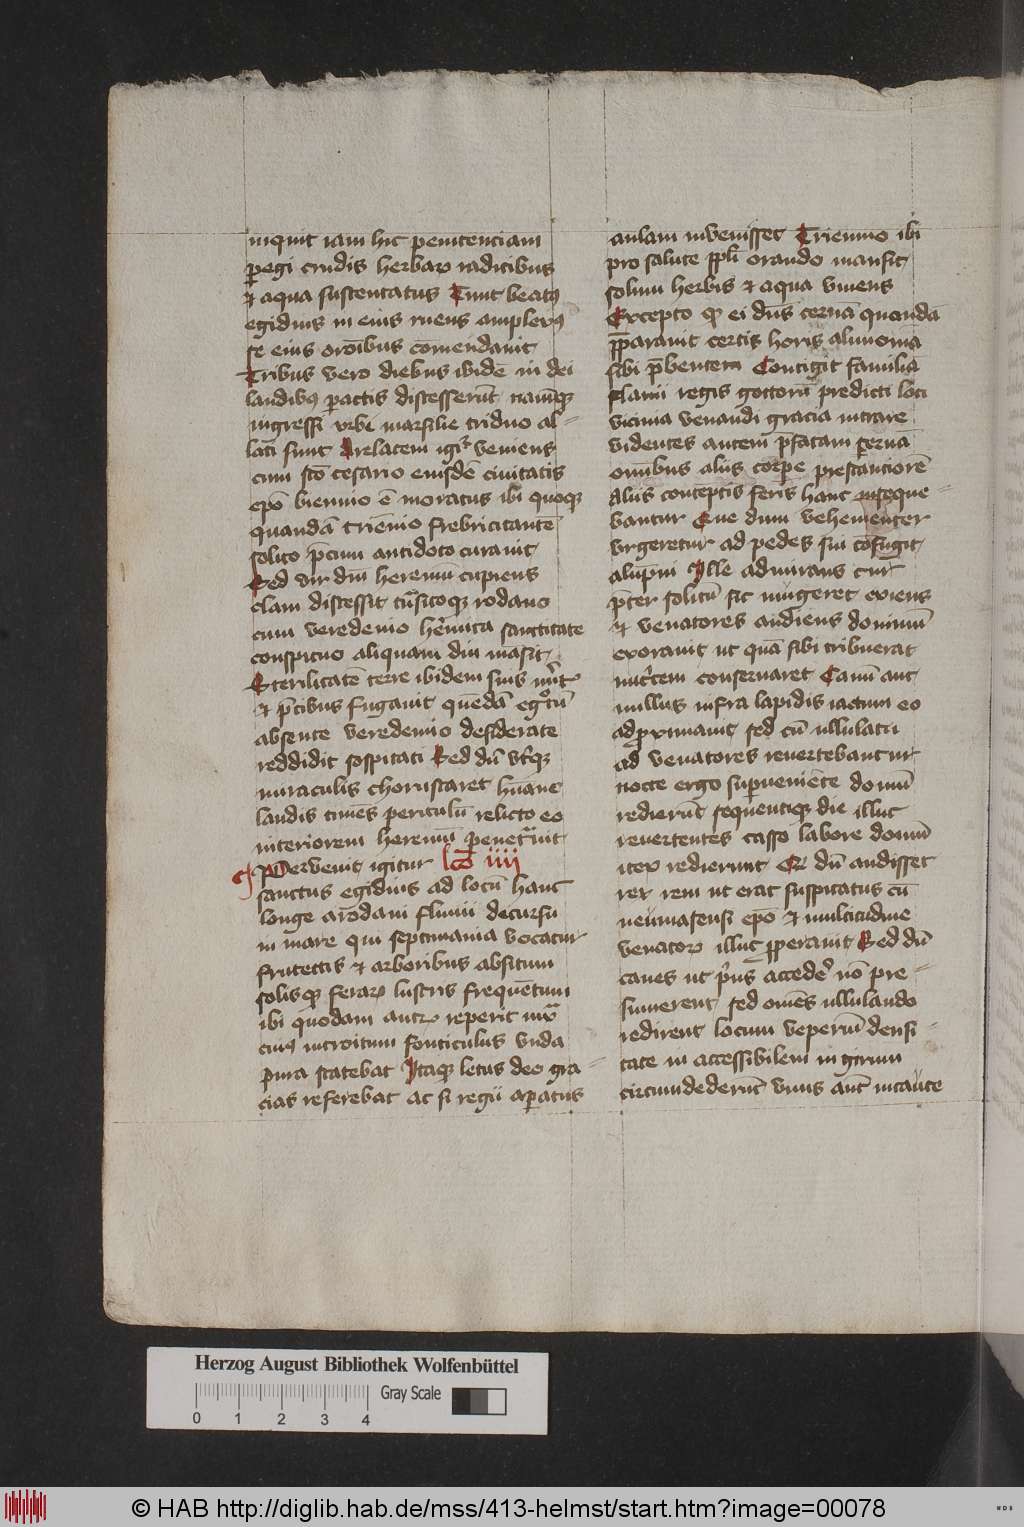 inquit iam hic penitenciam
ꝑegi crudis herbaꝝ radicibus
⁊ aqua sustentatus Tunc beatꝰ
egidius in eius ruens amplexꝰ
se eius orōibus comendauit
Tribus vero diebus ibidē in dei
laudibꝰ ꝑactis discesserūt
ingressi vrbē marsilie triduo al-
lati sunt Arelatem igit᷑ veniens
cum scō cesario eiusdē ciuitatis
epō biennio ē moratus ibi quoqꝫ
quandā trienio frebricitantē
solito p̄cum antidoto curauit
Sed vir dūi heremū cupiens
clam discessit tūsitoqꝫ rodano
cum veredemio hēmita sanctitate
conspicuo aliquam diu māsit
Sterilitatē terre ibidem suis
⁊ p̄cibus fugauit quēdā egͦtū
absente veredemio desiderate
reddidit sospitati Sed dū vtͥqꝫ
miraculis choruscaret hūane
laudis timēs periculū relicto eo
interiorem heremū penetᷓuit
Pervenit igitur lcō iiii
sanctus egidius ad locū hanc
longe a rodani fluuii decursu
in mare qui septimania vocatur
frutectis ⁊ arboribus absitum
solisqꝫ feraꝝ lustris frequētum
ibi quodam antrū reperit iuxᷓ
cuiꝰ introitum fonticulus vnda
pura scatebat Itaqꝫ letus deo gra-
cias referebat ac si regii aꝑatus
aulam inuenisset Triennio ibi
pro salute ppl̄i orando mansit
solum herbis ⁊ aqua viuens
Excepto qꝫ ei dn̄s ceruā quandā
p̄parauit certis horis alimonia
sibi p̄bentem Contigit familiā
Flauii regis gottorū predicti loci
vicinia venandi gracia intrare
videntes autem p̄fatam ceruā
omnibus aliis corꝑe prestantiorē
Aliis contēptis feris hanc inseque-
bantur Que dum vehementer
vrgeretur ad pedes sui cōfugit
alūpni Ille admirans cur
p̄ter solitū sic mugeret exiens
⁊ venatores audiens dominū
exorauit ut quā sibi tribuerat
nutͥcem conseruaret Canū aut
nullus infra lapidis iactum eo
adꝓximauit sed cū ullulatu
ad venatores reuertebantur
nocte ergo suꝑueniēte domū
redierūt sequentiqꝫ die illuc
reuertentes casso labore domū
itex redierunt Et dū audisset
rex rem ut erat suspicatus cū
neumasensi epō ⁊ multitudine
venatoꝝ illuc ꝓperauit Sed dū
canes ut p̄us accedeͤ nō pre-
sumerent sed omēs ullulando
redirent locum veperiū densi-
tate in accessibilem in girum
circumdederūt vnus aut̄ incaute
Herzog August Bibliothek Wolfenbüttel
Gray Scale
0 1 2 3 4
© HAB http://diglib.hab.de/mss/413-helmst/start.htm?image=00078